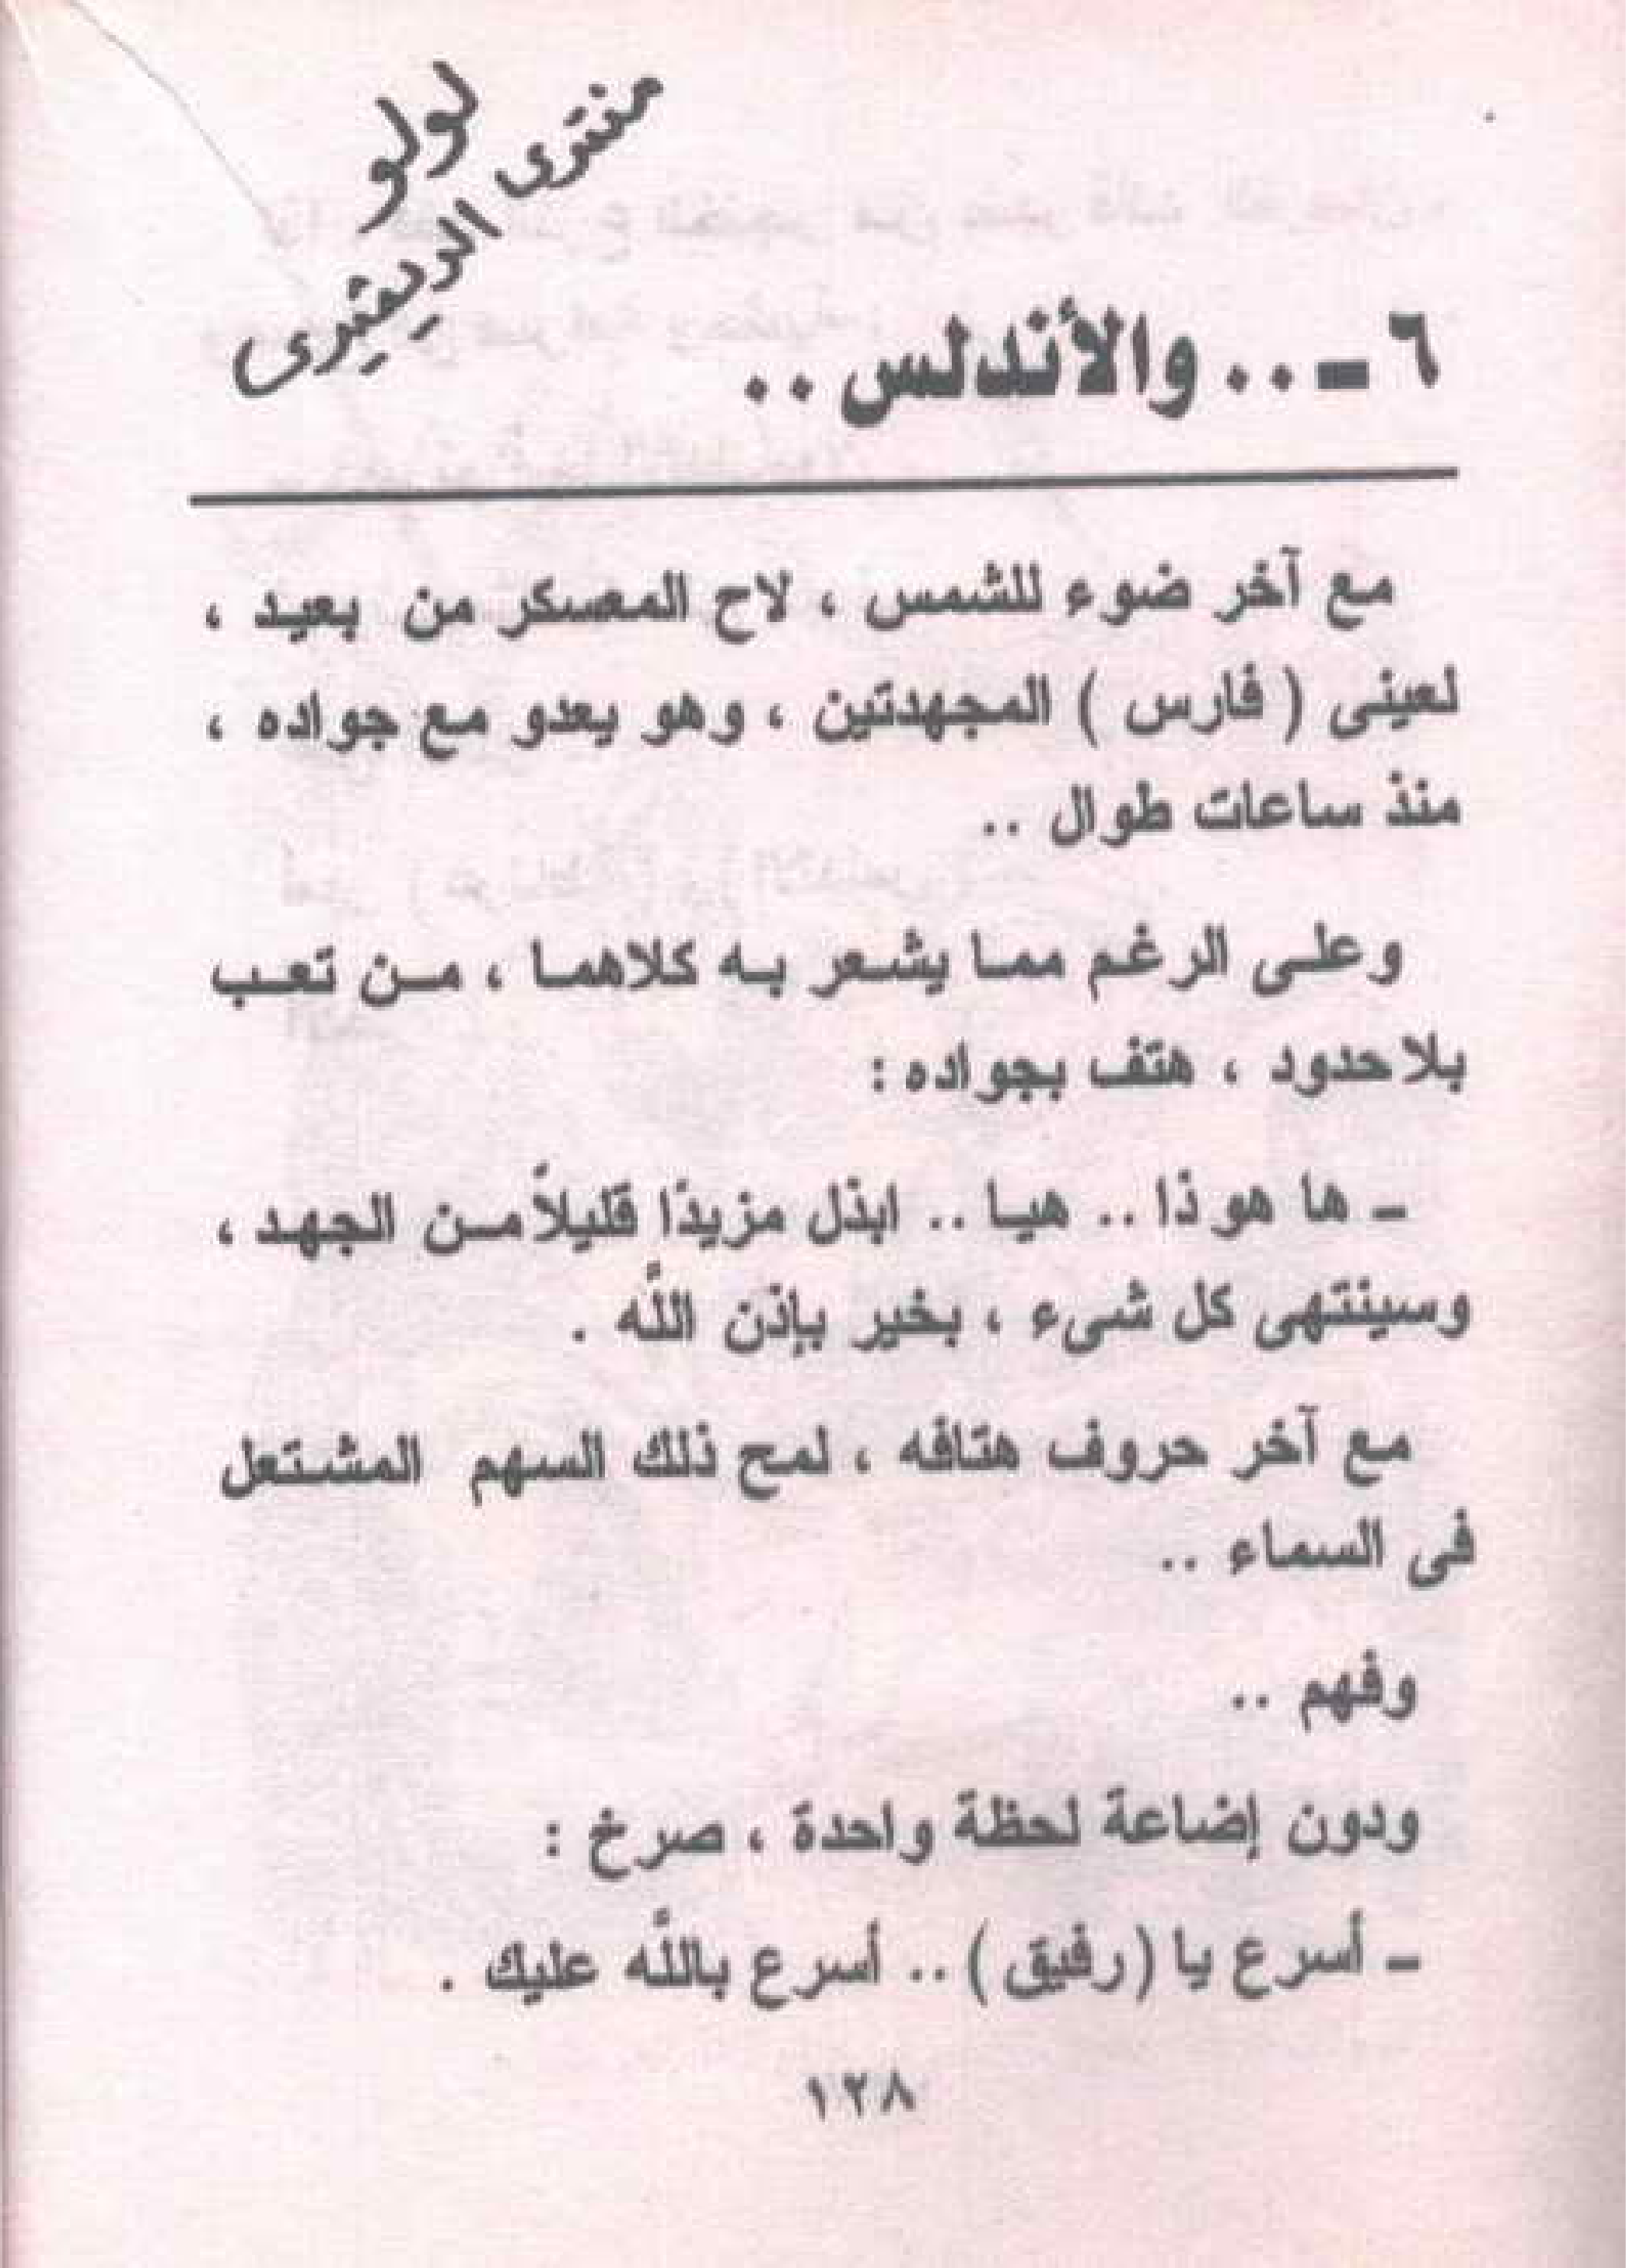 لولو
منتدى الديفيدى
٦ ـ .. والأندلس ..
مع آخر ضوء للشمس ، لاح المعسكر من بعيد ،
لعينى ( فارس ) المجهدتين ، وهو يعدو مع جواده ،
منذ ساعات طوال ..
وعلى الرغم مما يشعر به كلاهما ، من تعب
بلا حدود ، هتف بجواده :
ـ ها هو ذا .. هيا .. ابذل مزيدًا قليلاً من الجهد ،
وسينتهى كل شىء ، بخير بإذن اللَّه .
مع آخر حروف هتافه ، لمح ذلك السهم المشتعل
فى السماء ..
وفهم ..
ودون إضاعة لحظة واحدة ، صرخ :
ـ أسرع يا ( رفيق ) .. أسرع باللَّه عليك .
١٢٨